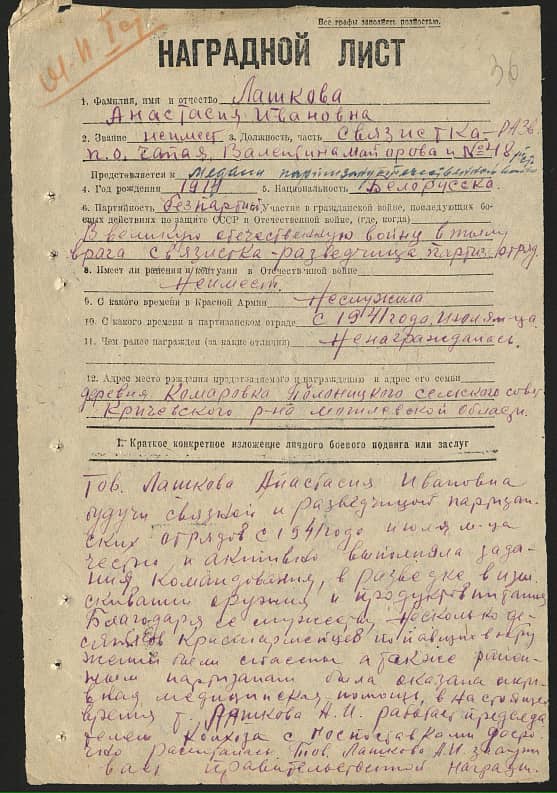 Все графы заполнять полностью.
НАГРАДНОЙ ЛИСТ
36
1. Фамилия, имя и отчество Лашкова
Анастасия Ивановна
2. Звание неимеет 3. Должность, часть связистка-разв.
п.о. Валентина Майорова №48
Представляется к Медали партизану отечественной войны
4. Год рождения 1914 5. Национальность Белорусска.
6. Партийность безпартийн участие в гражданской войне, последующих бо-
евых действиях по защите СССР и Отечественной войне, (где, когда)
В великую отечественную войну в тылу
врага связистка-разведчица партиз. отряд.
8. Имеет ли ранения и контузии в Отечественной войне
Неимеет.
9. С какого времени в Красной Армии Неслужила
10. С какого времени в партизанском отряде с 1941 года, июля м-ца
11. Чем ранее награжден (за какие отличия) Ненаграждалась.
12. Адрес место рождения представляемого к награждению и адрес его семьи
деревня Комаровка сельского совет
Кричевского р-на Могилевской области.
I. Краткое конкретное изложение личного боевого подвига или заслуг
Тов. Лашкова Анастасия Ивановна
будучи связной и разведчицой партизан-
ских отрядов с 1941 года июля м-ца
честно и активно выполняла зада-
ния командования, в разведке в изы-
скивании оружия и продуктов питания
Благодаря ее несколько де-
сятков Красноармейцев попавших в окру
жении были спасены а также ранен-
ным партизанам была оказана
медицинская помощь, в настоящее
время т. Лашкова А.И. работает председа
телем Колхоза с поставками
Тов. Лашкова А.И. заслужи
вает правительственной награды.